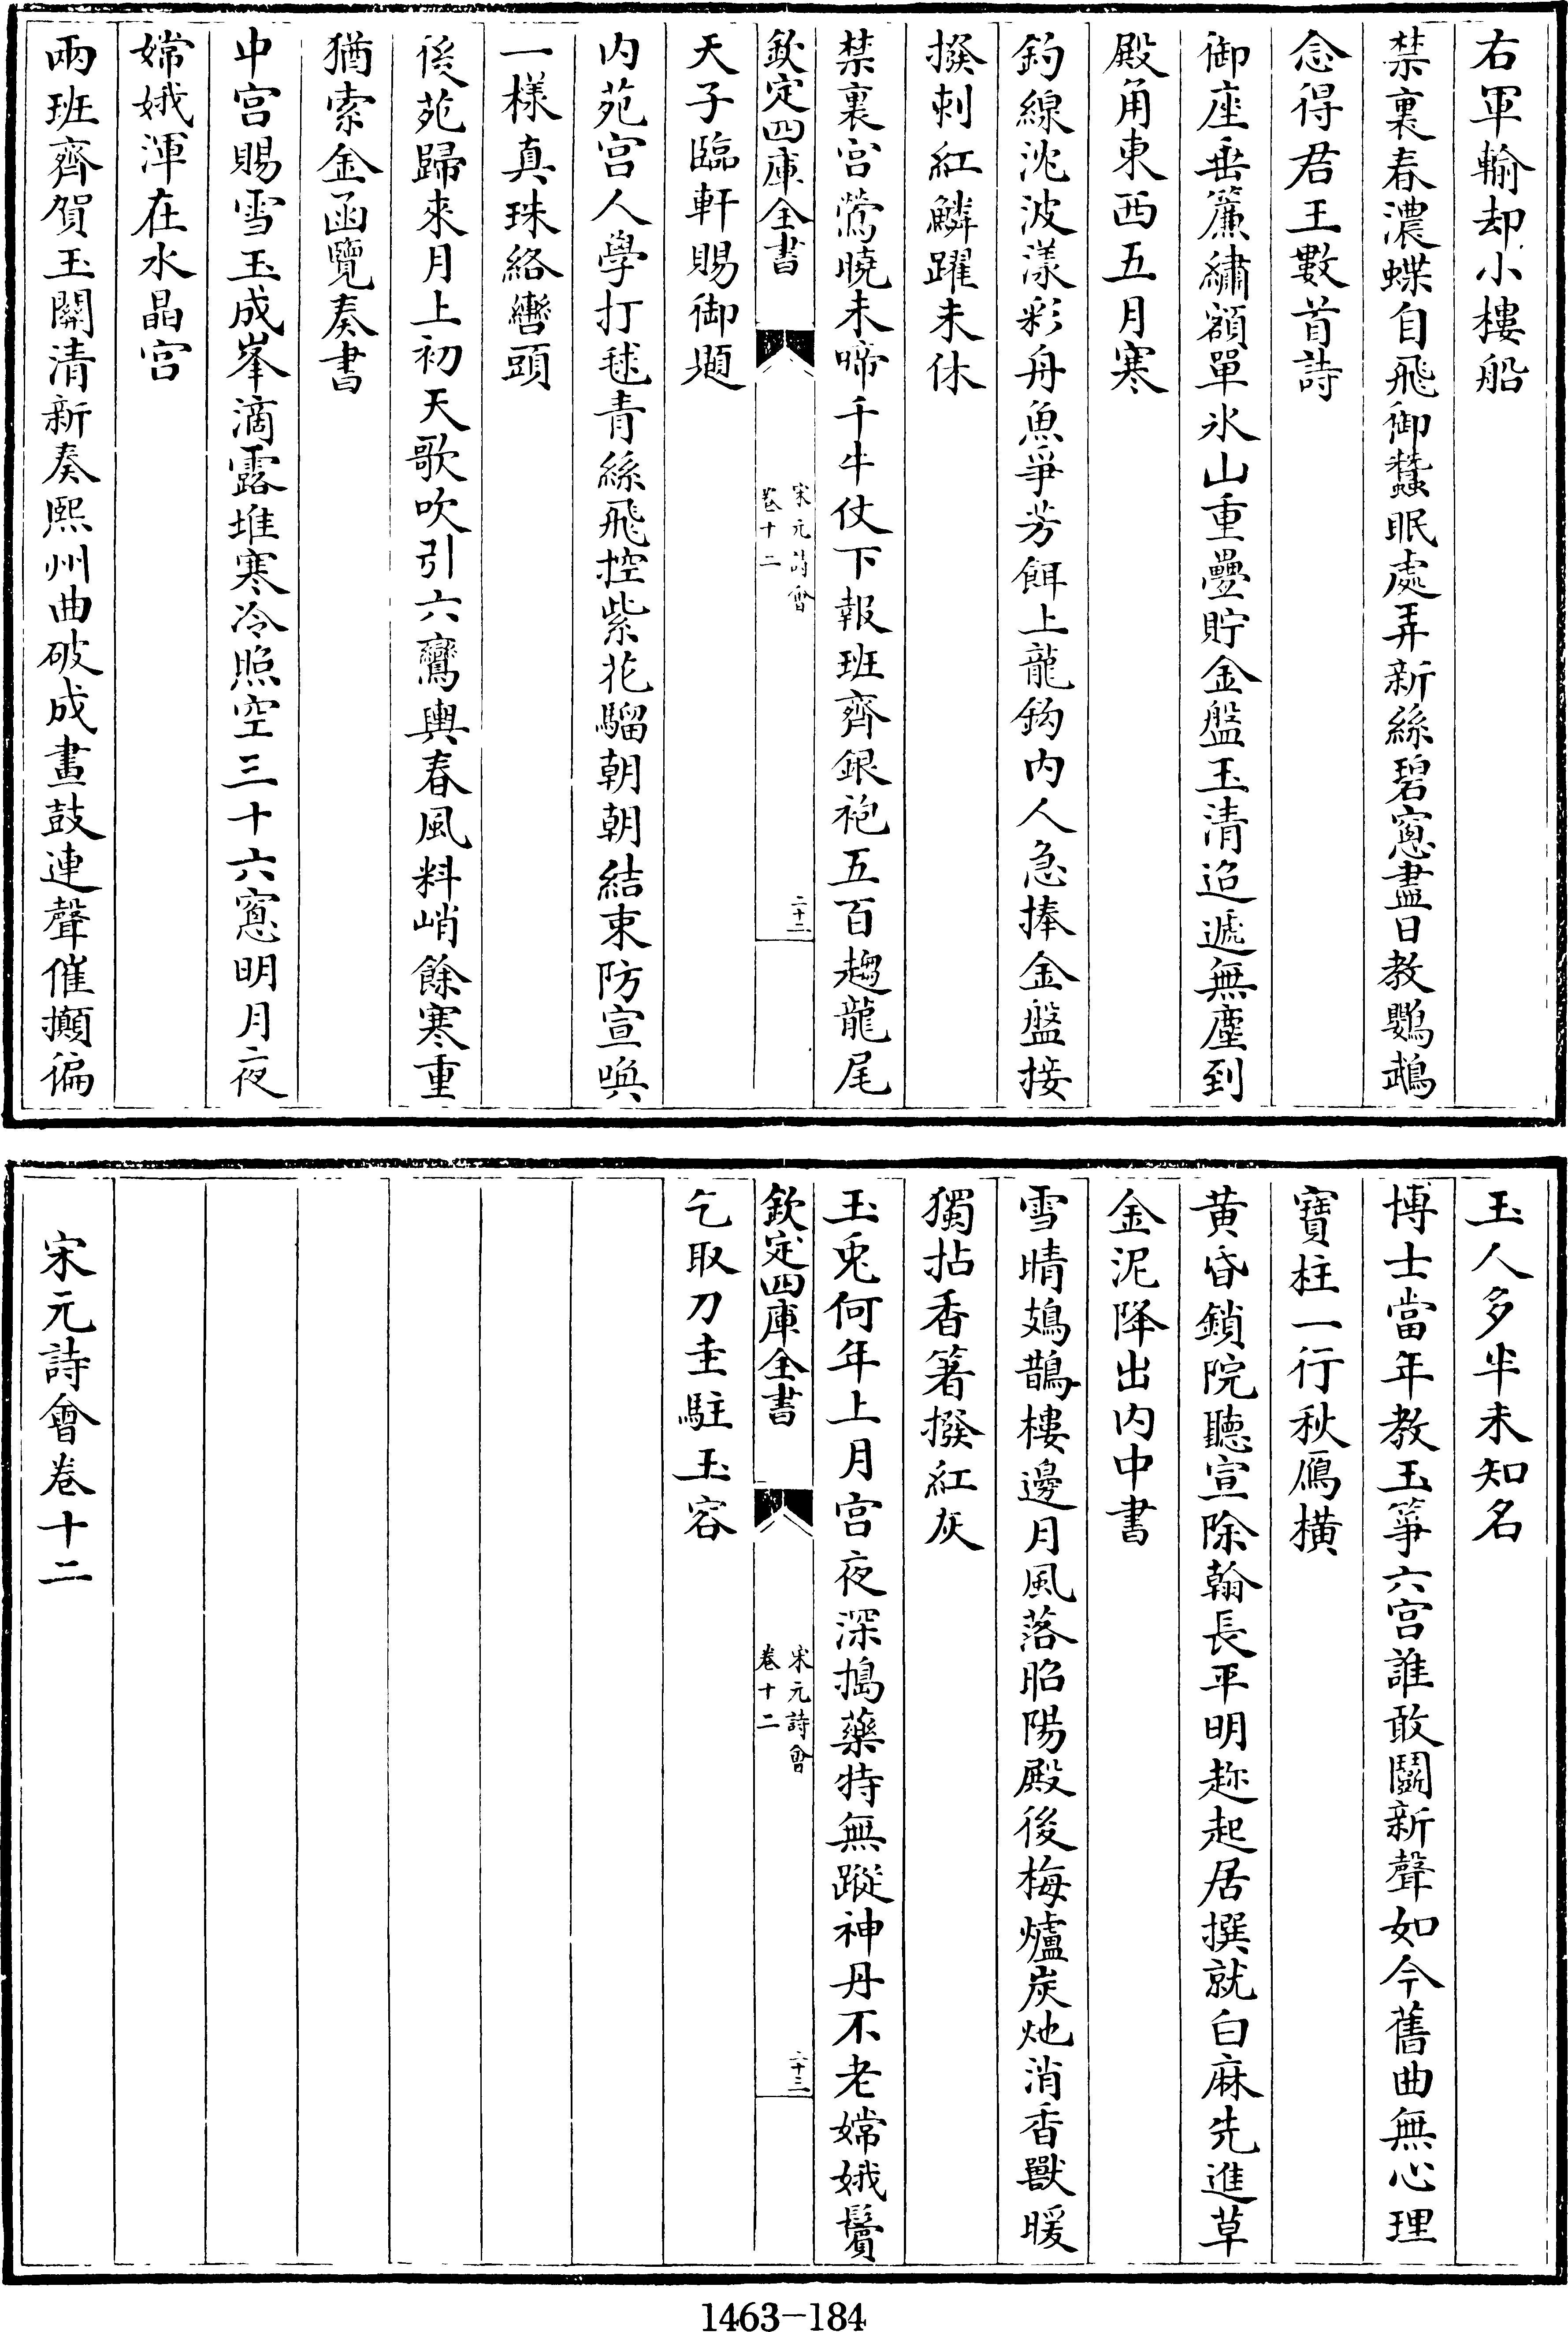 右軍輸却小樓船
禁裏春濃蝶自飛御蠶眠處弄新絲碧窻盡日教鸚鵡
念得君王數首詩
御座垂簾繡額單氷山重疊貯金盤玉清迢遞無塵到
殿角東西五月寒
釣線沈波漾彩舟魚爭芳餌上龍鈎内人急捧金盤接
撥剌紅鱗躍未休
禁裏宫鶯曉未啼千牛仗下報班齊銀袍五百趨龍尾
欽定四庫全書
宋元詩會
卷十二
二十二
天子臨軒賜御題
内苑宫人學打毬青絲飛控紫花騮朝朝結束防宣喚
一様真珠絡轡頭
後苑歸來月上初天歌吹引六鸞輿春風料峭餘寒重
猶索金函覽奏書
中宫賜雪玉成峯滴露堆寒冷照空三十六窻明月夜
嫦娥渾在水晶宫
兩班齊賀玉關清新奏熙州曲破成畫鼓連聲催攧徧
玉人多半未知名
博士當年教玉箏六宫誰敢鬭新聲如今舊曲無心理
寶柱一行秋鴈橫
黄昏鎖院聽宣除翰長平明趂起居撰就白麻先進草
金泥降出内中書
雪晴鳷鵲樓邊月風落昭陽殿後梅爐炭灺消香獸暖
獨拈香箸撥紅灰
玉兎何年上月宫夜深搗藥特無蹤神丹不老嫦娥鬢
欽定四庫全書
宋元詩會
卷十二
二十三
乞取刀圭駐玉容
宋元詩會卷十二
1463-184